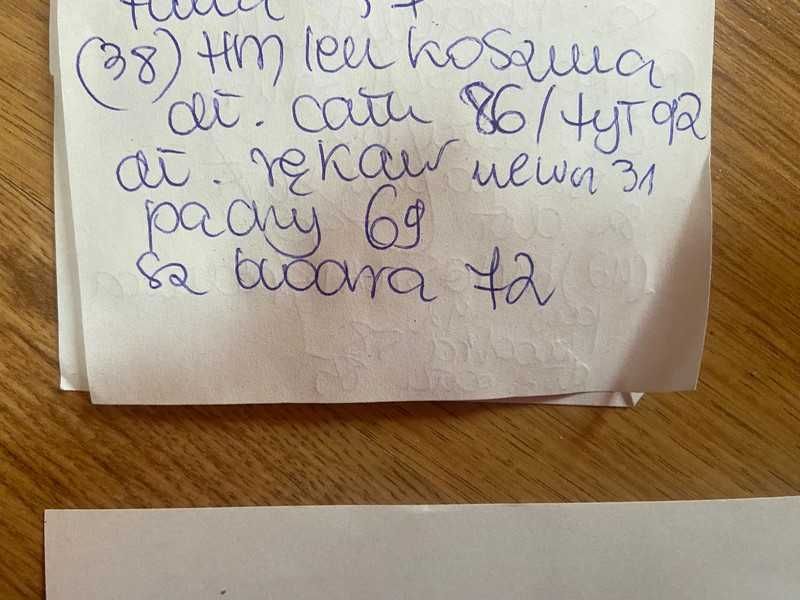 talia
(38) HM len koszula
dł. całk 86/tył 92
dł. rękaw 31
pachy 69
sz biodra 72